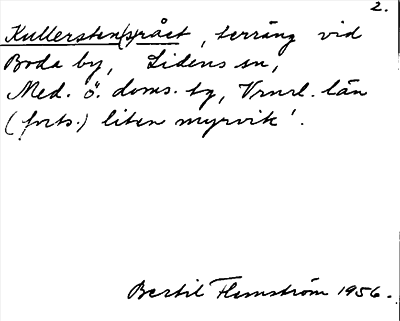 2.
Kullersten(s)rået, terräng vid
Boda by, Lidens sn,
Med. ö. doms. tg, Vrnrl. län
(forts.) liten myrvik'.
Bertil Flemström 1956.